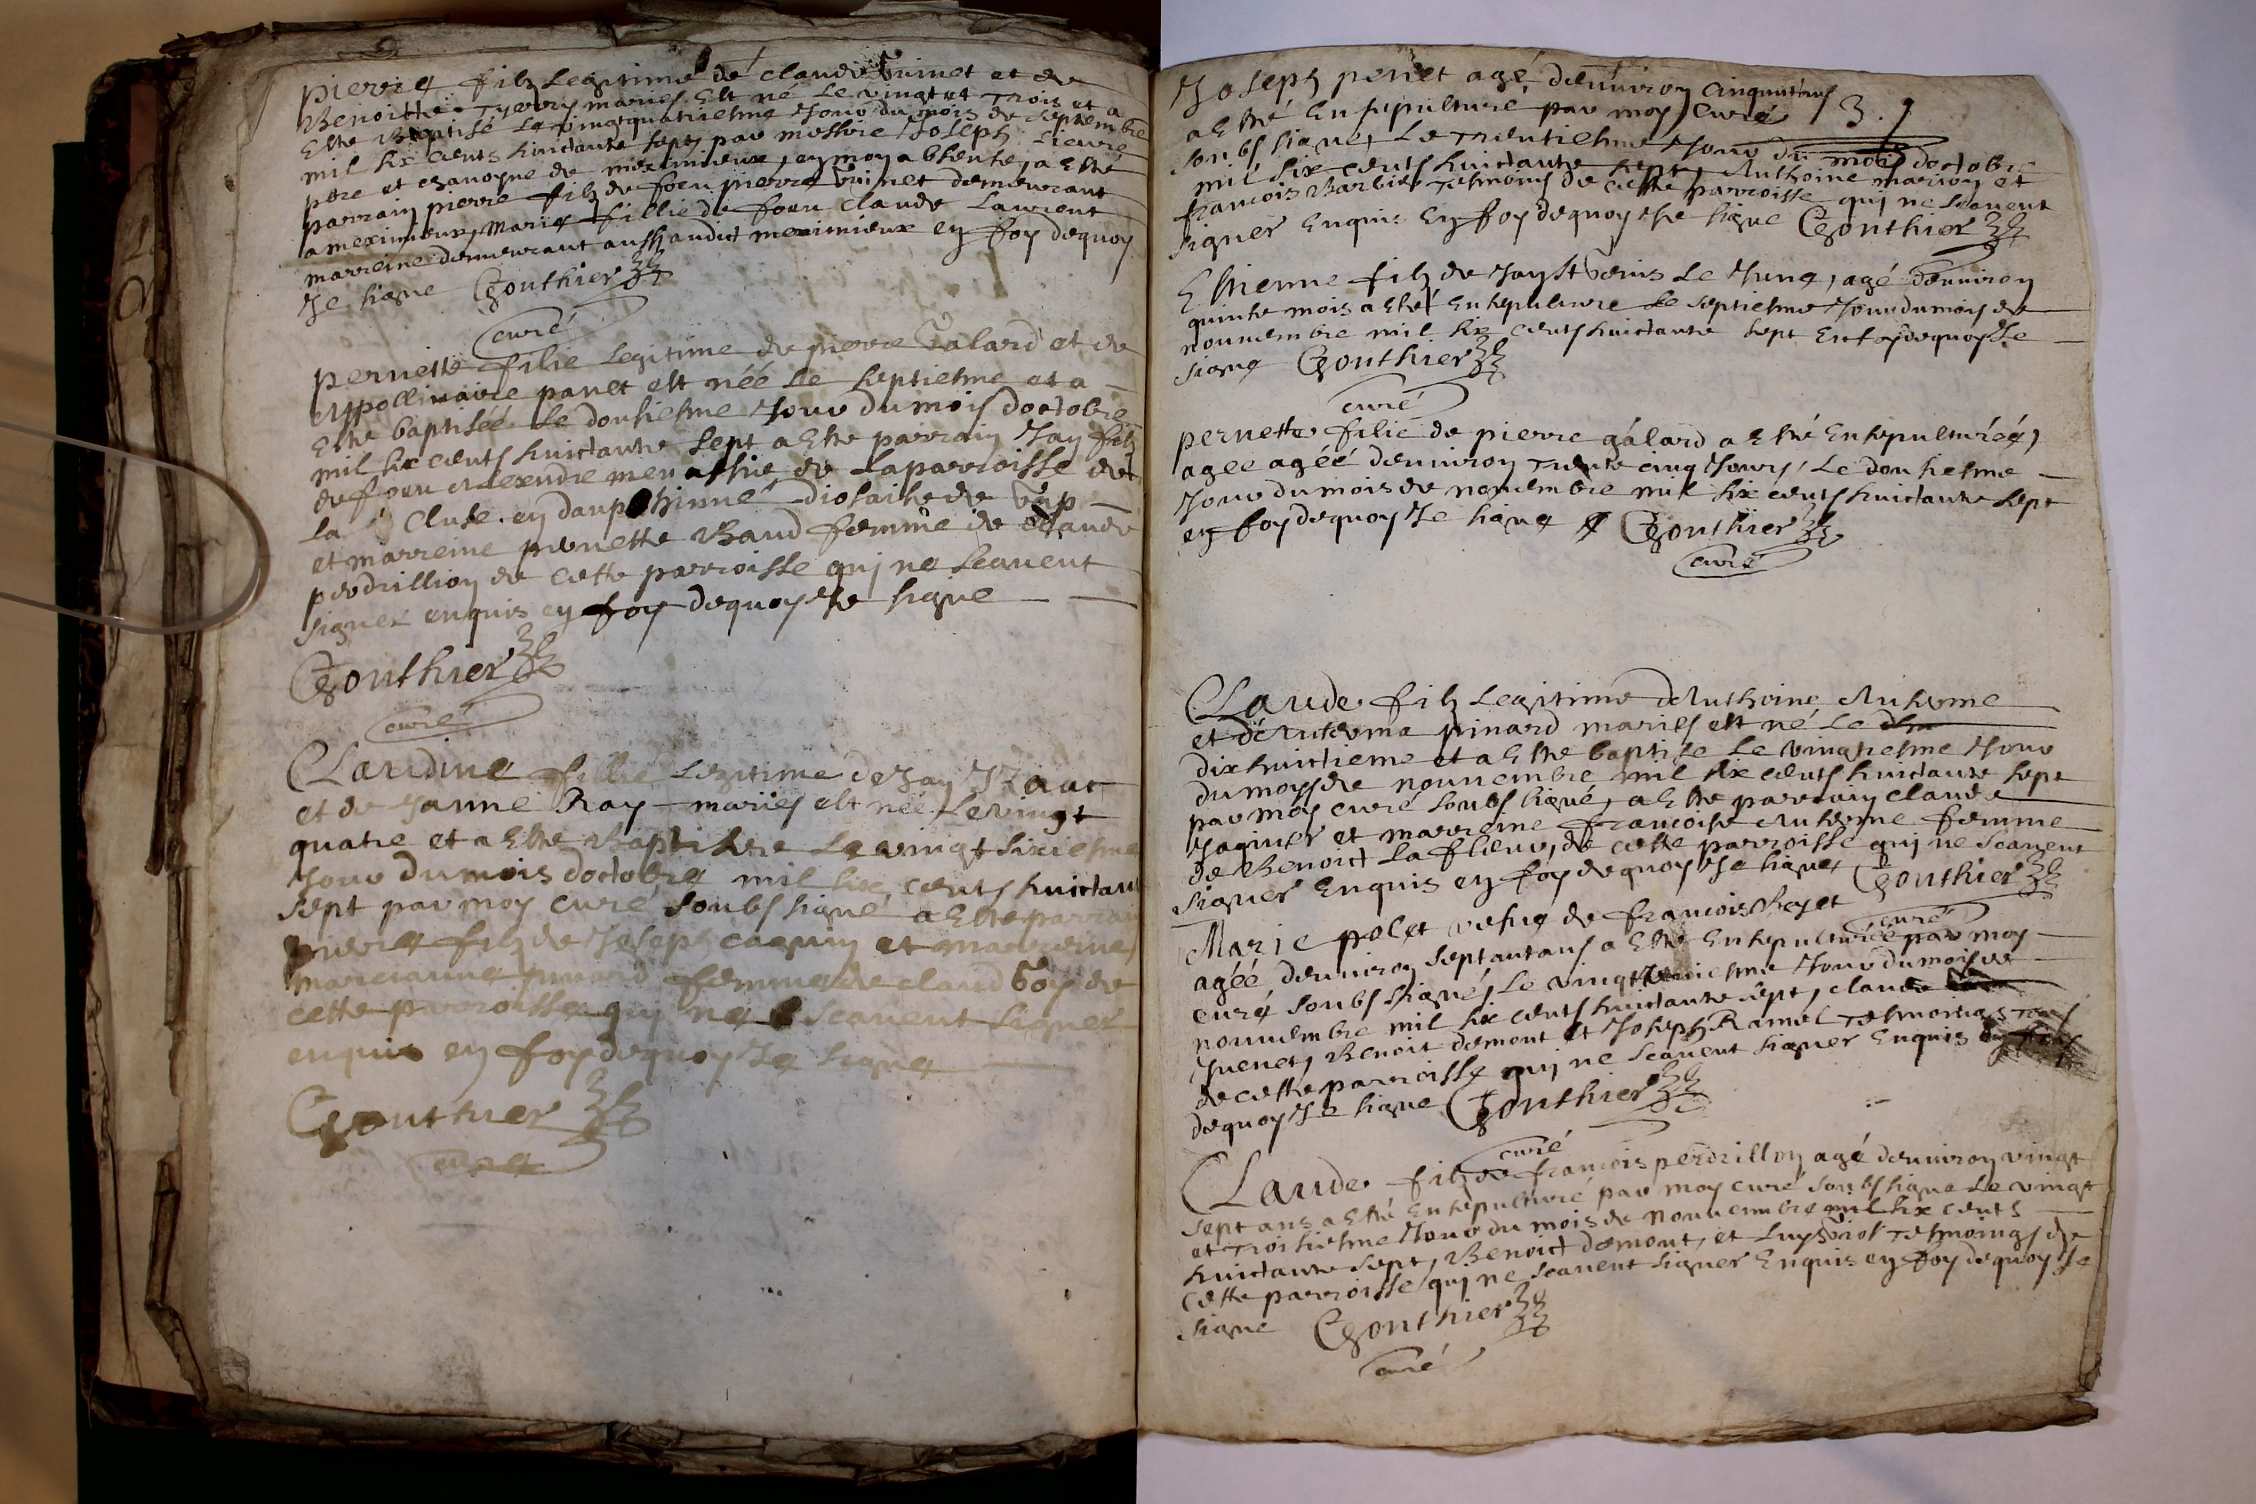 pierre filz Legitime de claude Guinet et de
Benoitte Thyerry mariés Est né Le vingt et trois et a
Este Baptisé Le vingtquatriesme Jour du mois de septembre
mil six cents huictante sept par messire Joseph
pbre et chanoyne de meximieux, en moy absente, a esté
parrain pierre filz de feu pierre Guinet demeurant
a meximieux, marie fillie de feu claude Laurent
marreine demeurant aussy audict meximieux en foy dequoy
Je signe Gonthier
curé
pernette fillie Legitime de pierre Galard et de
Appollinaire panet est née Le septiesme et a
Este baptisée Le douziesme Jour du mois doctobre
mil six cents huictante sept a Este parrain Jan filz
de feu Alexendre de La parroisse de
La Cluse en dauphinné diosaize de Gap
et marreine pernette Baud femme de claude
perdrillion de cette parroisse qui ne scavent
signer enquis en foy dequoy Je signe
Gonthier
curé
Claudine fillie Legitime de Jan
et de Janne Ray mariés est née Le vingt
quatre et a Este Baptisée Le vingt sixiesme
Jour du mois doctobre mil six cents huictante
sept par moy curé soubsigné a Este parrain
pierre filz de Joseph caquin et marreine
pinard femme de claud Goy de
cette parroisse qui ne scavent signer
enquis en foy dequoy Je signe
Gonthier
curé
Joseph perret agé denviron cinquntans
a Esté Ensepulturé par moy Curé 3.
soubsigné, Le trentiesme Jour du mois doctobre
mil six cents huictante sept, Anthoine marion et
francois Barbier tesmoins de cette parroisse qui ne scavent
signer Enquis En foy dequoy Je signe Gonthier
Estienne filz de Jan le Jeune, agé denviron
quinze mois a Esté Ensepulture Le septiesme Jour du mois de
nouvembre mil six cents huictante sept En foy dequoy Je
signe Gonthier
curé
pernette filie de pierre galard a Esté Ensepulturéé,
agee agéé denviron trente cinq Jours, Le douziesme
Jour du mois de novembre mil six cents huictante sept
en foy dequoy Je signe Gonthier
curé
Claude filz Legitime dAnthoine
et pinard mariés est né Le
dixhuictieme et a Este baptise Le vingtiesme Jour
du moys de nouvembre mil six cents huictante sept
par moy curé soubsigné, a Este parrain claude
et marreine francoise femme
de Benoict Lafleur, de cette parroisse qui ne scavent
signer Enquis en foy dequoy Je signe Gonthier
curé
Marie polet vefve de francois
agéé denviron septantans a Esté Ensepulturéé par moy
curé soubsigné, Le Jour du mois de
nouvembre mil six cents huictante sept, claude
Juenet, Benoit demont et Joseph Ramel tesmoings tous
de cette parroisse qui ne scavent signer Enquis en foy
dequoy Je signe Gonthier
curé
Claude filz de francois perdrillon agé denviron vingt
sept ans a Esté Ensepulturé par moy curé soubsigne Le vingt
et troisiesme Jour du mois de nouvembre mil six cents
huictante sept, Benoict demont, et tesmoings de
cette parroisse qui ne scavent signer Enquis en foy dequoy Je
signe Gonthier
curé